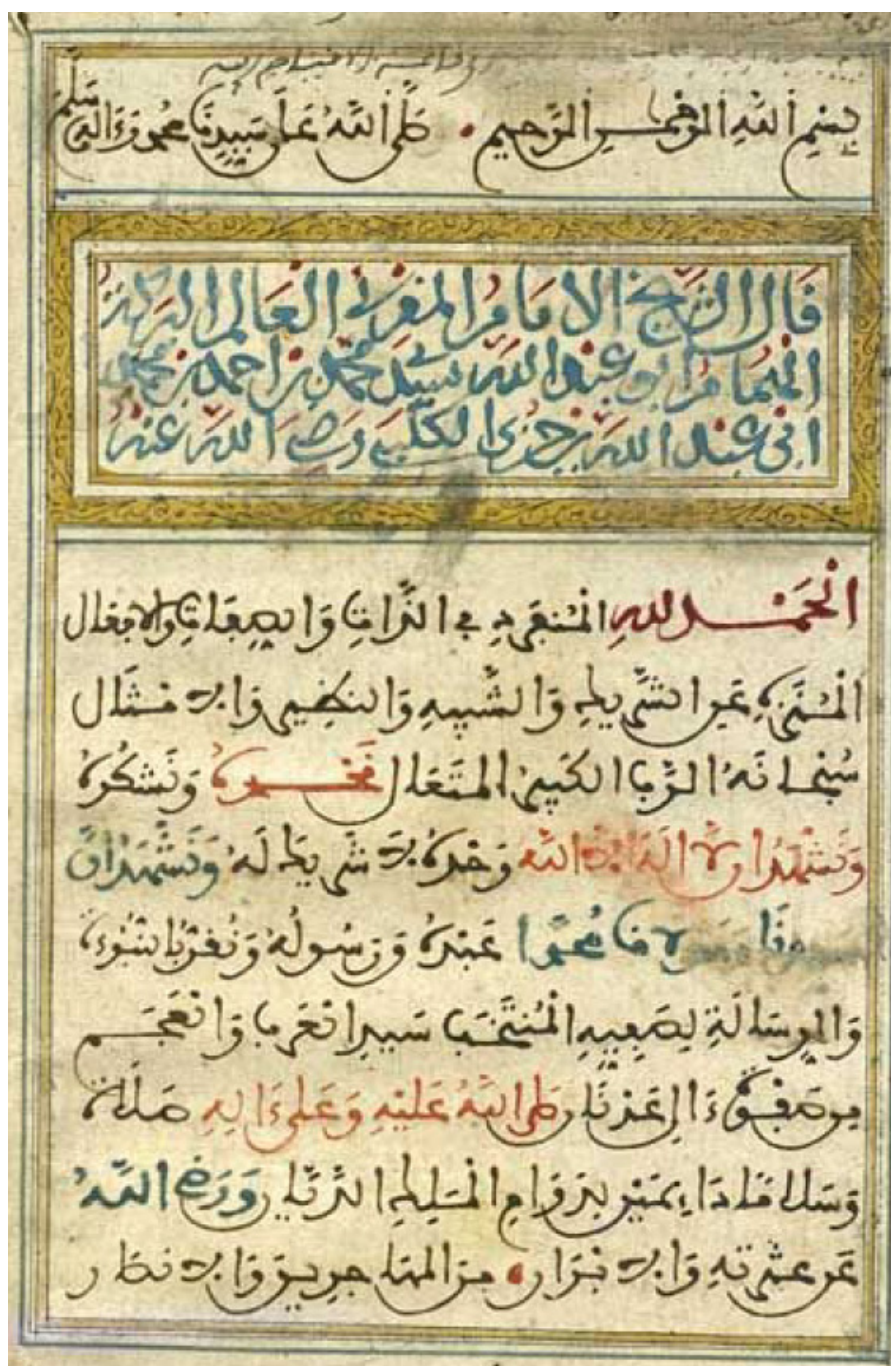 بسم الله الرحمن الرحيم صلى الله على سيدنا محمد وءاله وسلم
قال الشيخ الامام المقرئ العالم البركة
الهمام ابو عبد الله سيدي محمد بن احمد بن محمد
ابي عبد الله بن جزي الكلبي رضي الله عنه
الحمد لله المنفرد في الذات والصفات والافعال
المنزه عن الشريك والشبيه والنظير والامثال
سبحانه الرب الكبير المتعال نحمده ونشكره
ونشهد ان لا اله الا الله وحده لا شريك له ونشهد ان
سيدنا ومولانا محمدا عبده ورسوله ونقر بالنبوءة
والرسالة لصفيه المنتخب سيد العرب والعجم
من صفوة ءال عدنان صلى الله عليه وعلى ءاله صلاة
وسلاما دائمين بدوام الملك الديان ورضي الله
عن عترته والابرار من المهاجرين والانصار